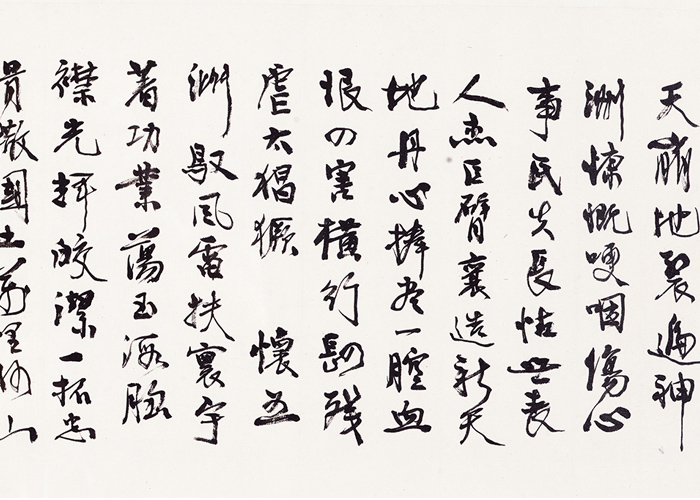 天崩地裂遍神
洲慷慨哽咽傷心
事民失長怙世喪
人杰巨臂襄造新天
地丹心捧尽一腔血
恨四害橫行殘
虐太猖獗 懷五
洲馭風雷扶寰宇
著功業蕩玉
襟光輝皎潔一拓忠
骨散國土萬里河山